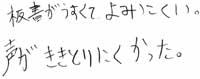 板書がうすくて、よみにくい。
声がききとりにくかった。